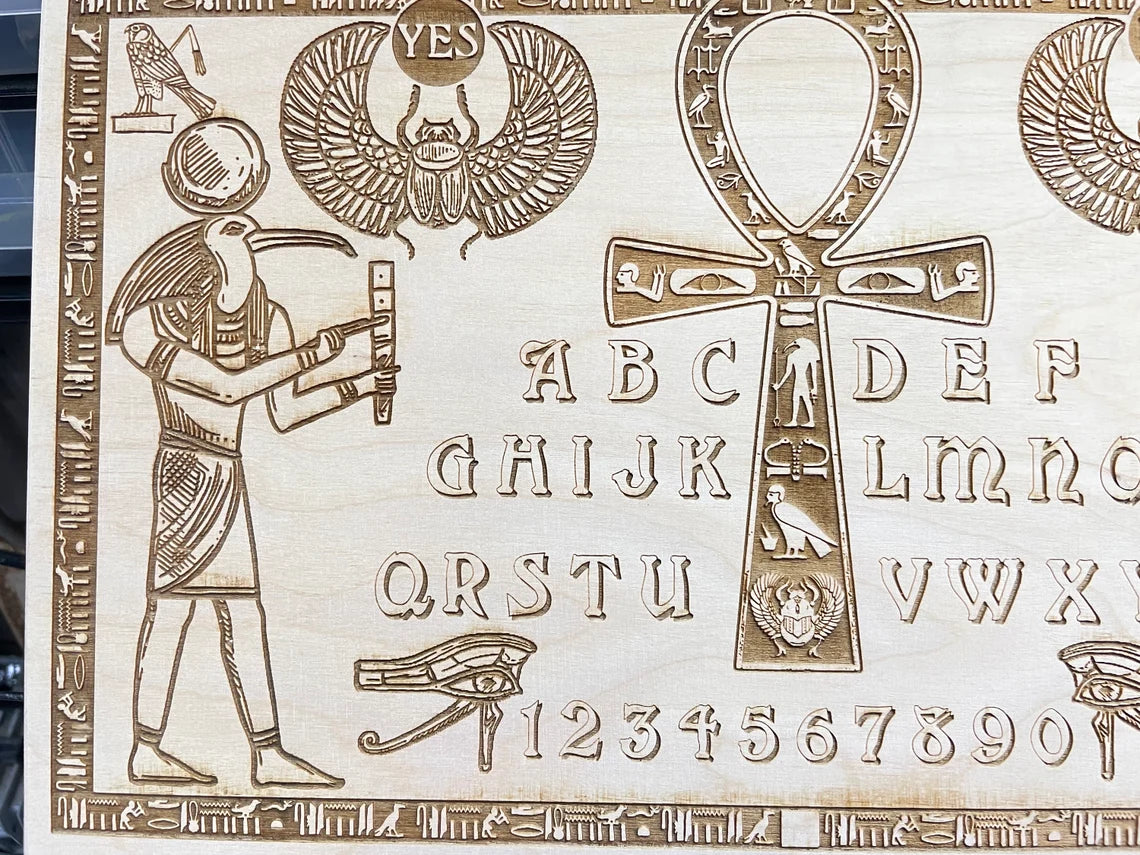 YES
A B C D E F
G H I J K L M N O
Q R S T U V W X
1 2 3 4 5 6 7 8 9 0